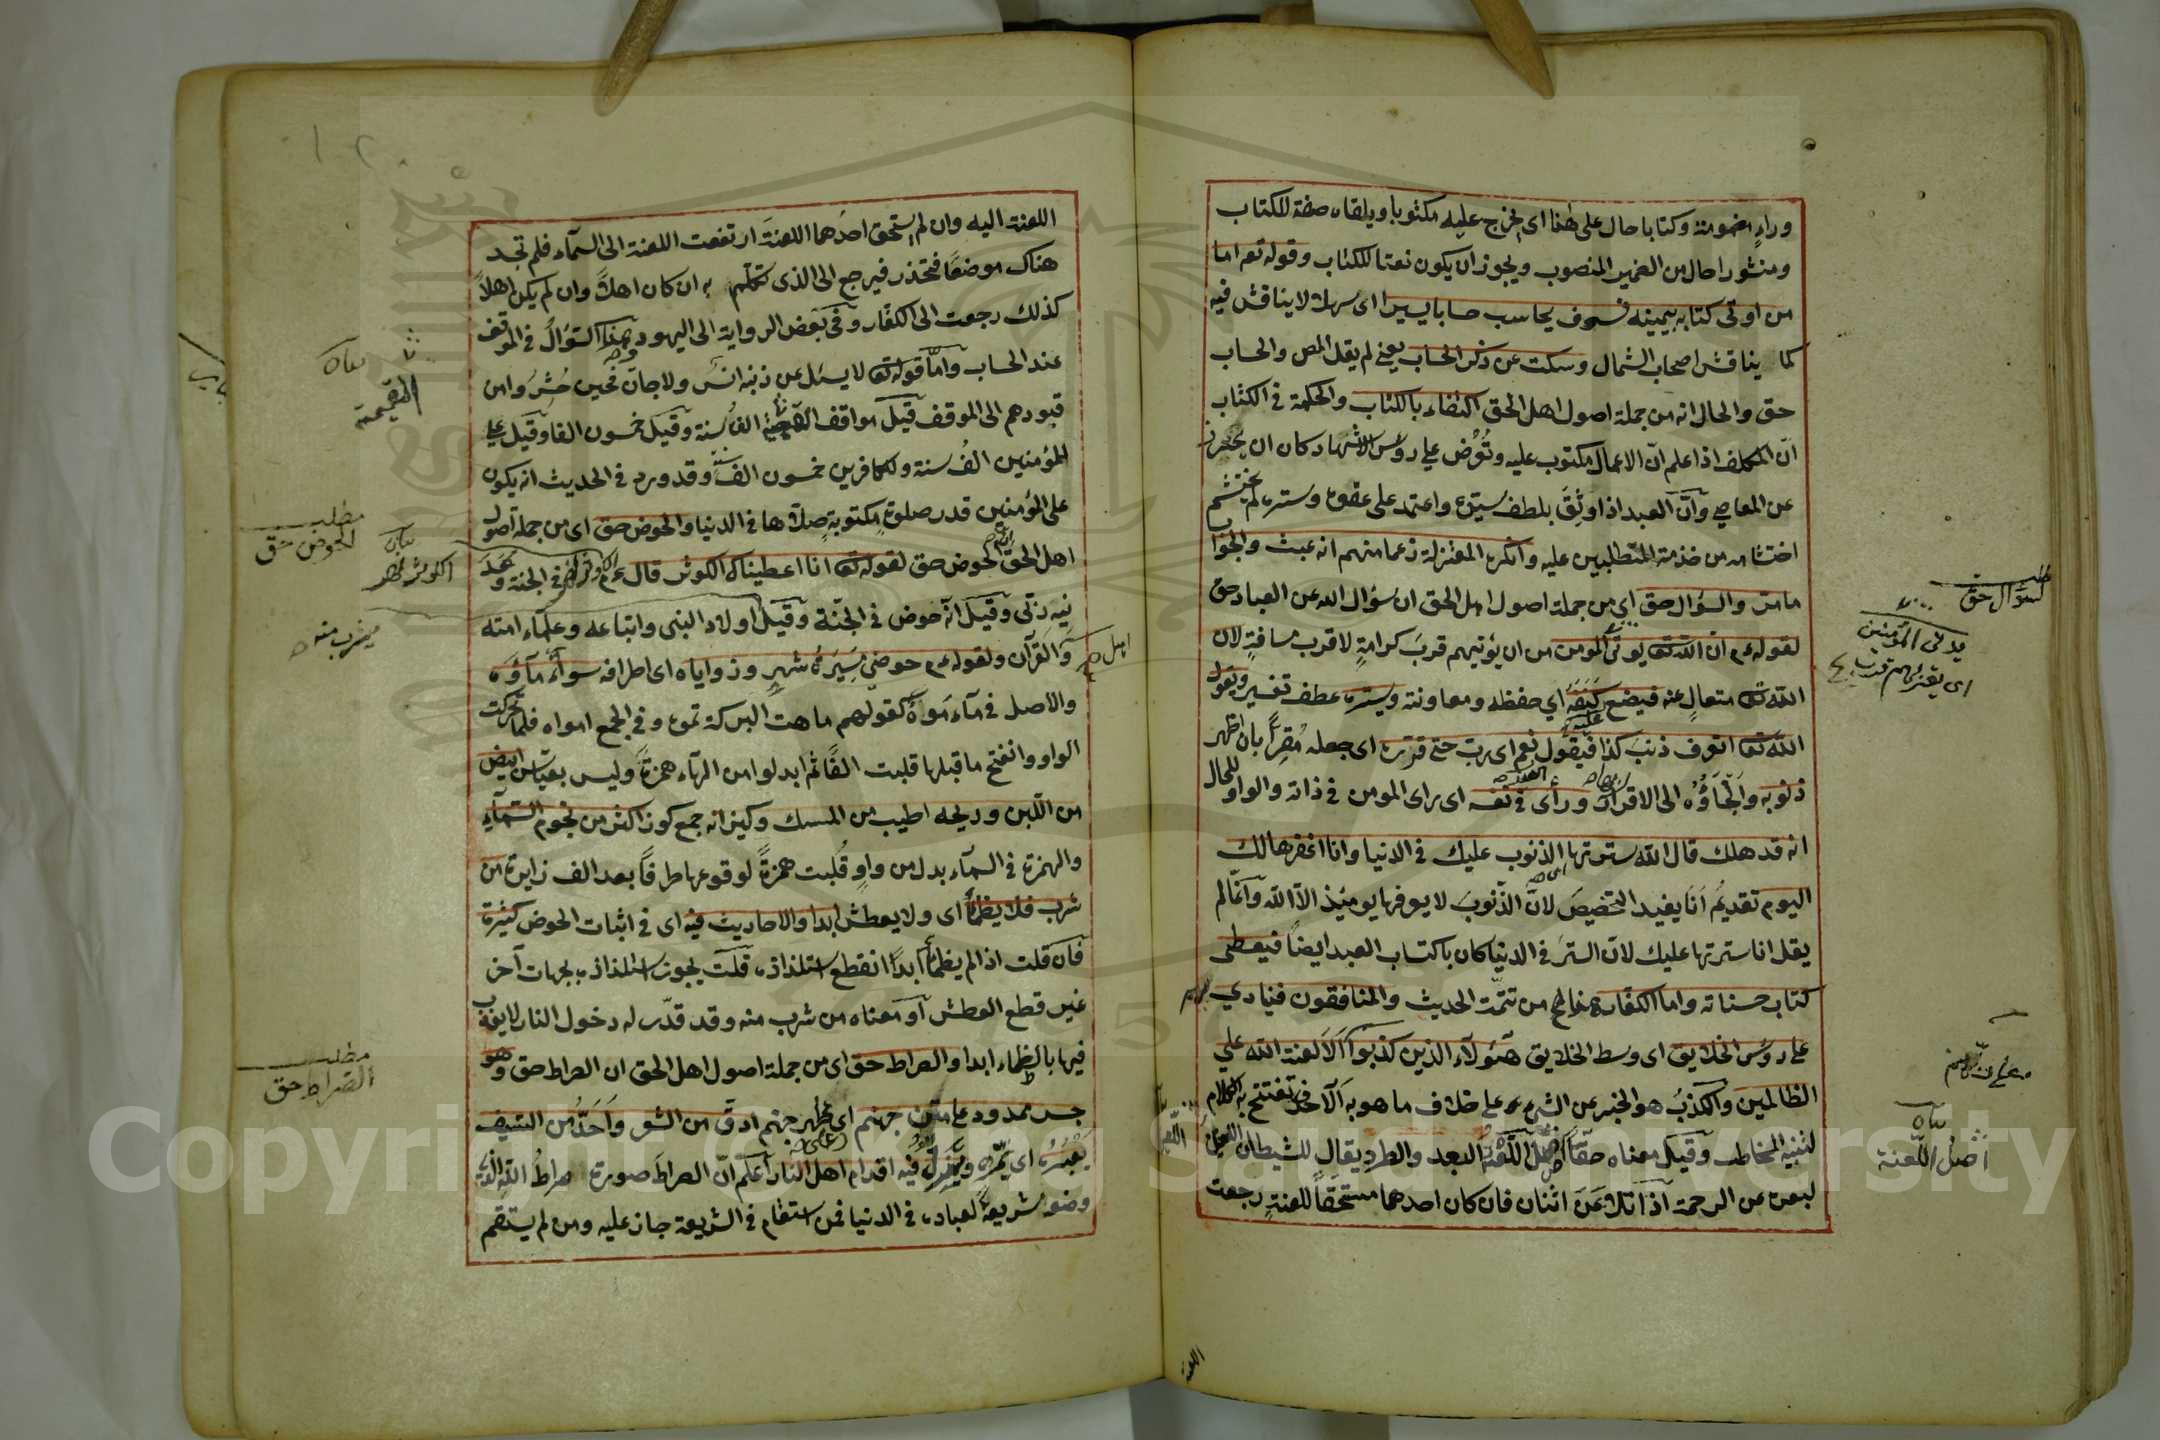 وراءٍ مضمومة وكتابا حال على هذا اى يخرج عليه مكتوبا ويلقاه صفة للكتاب
ومنشورا حال من الضمير المنصوب ويجوز ان يكون نعتا للكتاب وقوله تع اما
من اوتى كتابه بيمينه فسوف يحاسب حسابا يسيرا اى سهلا لا يناقش فيه
كما يناقش اصحاب الشمال وسكت عن ذكر الحساب يعنى لم يقل المص والحساب
حق والحال انه من جملة اصول اهل الحق اكتفاء بالكتاب والحكمة فى الكتاب
انّ المكلف اذا علم انّ الاعمال مكتوب عليه وتُعرض على رؤس الاشهاد كان ان يحترز
عن المعاصى وانّ العبد اذا وثِقَ بلطف سيّده واعتمد على عفوه وستره لم يحتشم
احتشامه من خدمة المطّلعين عليه وانكره المعتزلة زعما منهم انه عبث والجواب
ما مرّ والسؤال حق اى من جملة اصول اهل الحق ان سؤال الله عن العباد حق
لقوله ءم ان الله تع يدنى المؤمن من ان يؤتيهم قربَ كرامةٍ لا قرب مسافةٍ لان
الله تع متعالٍ عنه فيضع كَنَفَه اى حفظه ومعاونته ويستره عطف تفسير ويقول
الله تعا اتعرف ذنب كذا فيقول نعم اى رب حتى قرّره اى جعله مُقِرًّا بان اظهر
ذنوبه والْجَاؤُه الى الاقرار ورأى فى نفسه اى راى المومن فى ذاته والواو للحال
انه قد هلك قال الله سترتها الذنوب عليك فى الدنيا وانا اغفرها لك
اليوم تقديمُ اَنَا يفيد التخصيصَ لانّ الذّنوبَ لا يغفرها يومئذ الا الله وانّما لم
يقل انا سترتها عليك لانّ السترَ فى الدنيا كان باكتساب العبد ايضًا فيعطى
كتاب حسناته واما الكفّار هذا الخ من تتمّة الحديث والمنافقون فينادي
على رؤس الخلايق اى وسط الخلايق هَؤلآء الذين كذبوا اَلَا لعنة الله على
الظالمين والكذبُ هو الخبر عن الشئ على خلاف ما هو به اَلَا حرف تفتتح به الكلام
لتنبيه المخاطب وقيل معناه حقّا اصل اللّعنة البعد والطرد يقال للشيطان اللعين
لبعده عن الرحمة اذا تلاعَنَ اثنان فان كان احدهما مستحقّاً للعنةِ رجعت
السؤال حق
يدنى المؤمنين
اى يقربهم
بيان
اصل اللّعنة
اللعنة
اللعنة اليه وان لم يستحق احدهما اللعنةَ ارتفعت اللعنة الى السمآء فلم تجد
هناك موضعًا فتحذر فيرجع الى الذى تكلّم به ان كان اهلًا وان لم يكن اهلاً
كذلك رجعت الى الكفّار وفى بعض الرواية الى اليهود وهذا السّؤالُ فى الموقف
عند الحساب وامّا قوله تع لا يسئل عن ذنبه انسٌ ولا جانّ فحين حُشرُوا من
قبورهم الى الموقف قيل مواقف القيمة الفُ سنة وقيل خمسون الفا وقيل على
المؤمنين الفُ سنة وللكافرين خمسون الفَ وقد ورد فى الحديث انه يكون
على المؤمنين قدر صلوةٍ مكتوبةٍ صلّاها فى الدنيا والحوض حق اى من جملة اصول
اهل الحق الحوض حق لقوله تع انا اعطيناك الكوثر قال ءم الكوثر نهر فى الجنة وعد
فيه ربّى وقيل انّه حوض فى الجنّة وقيل اولاد النبى واتباعه وعلمآء امته
والقرآن ولقوله ءم حوضى مَسِيرَةُ شهرٍ وزواياه اى اطرافه سوآءٌ مآؤه
والاصل فى مآء مَوَهٌ كقولهم ماهت البركة تموه وفى الجمع امواه فلما تحركت
الواو وانفتح ما قبلها قلبت الفًا ثم ابدلوا من الهآء همزةً وليس بقياس ابيض
من اللّبن وريحه اطيب من المسك وكيزانه جمع كوز اكثر من نجوم السّمآءِ
والهمزة فى السمآء بدل من واوٍ قُلبت همزةً لوقوعها طرفًا بعد الف زايدة من
شرب فلا يظمأ اى ولا يعطش ابدا والاحاديث فيه اى فى اثبات الحوض كثيرة
فان قلت اذا لم يظمأ ابدًا انقطع استلذاذه قلت يجوز استلذاذه بجهات آخر
غير قطع العطش او معناه من شرب منه وقد قدّر له دخول النار لا يعذب
فيها بالظماء ابدا والصراط حق اى من جملة اصول اهل الحق ان الصراط حق وهو
جسر ممدود على متن جهنم اى ظهر جهنم ادق من الشعر واَحَدُّ من السّيف
يَعْبُرُه اى يمُرّه ويزلّ فيه اقدام اهل النار اعلم انّ الصراطَ صورة صراطُ الله الذى
وضعه شريعةً لعباده فى الدنيا فمن استقام فى الشريعة جاز عليه ومن لم يستقم
بيان
القيمة
مطلب
الحوض حق
بيان
الكوثر نهر
فيشرب منه
مطلب
الصّراط حق
اهل
Copyright © King Saud University